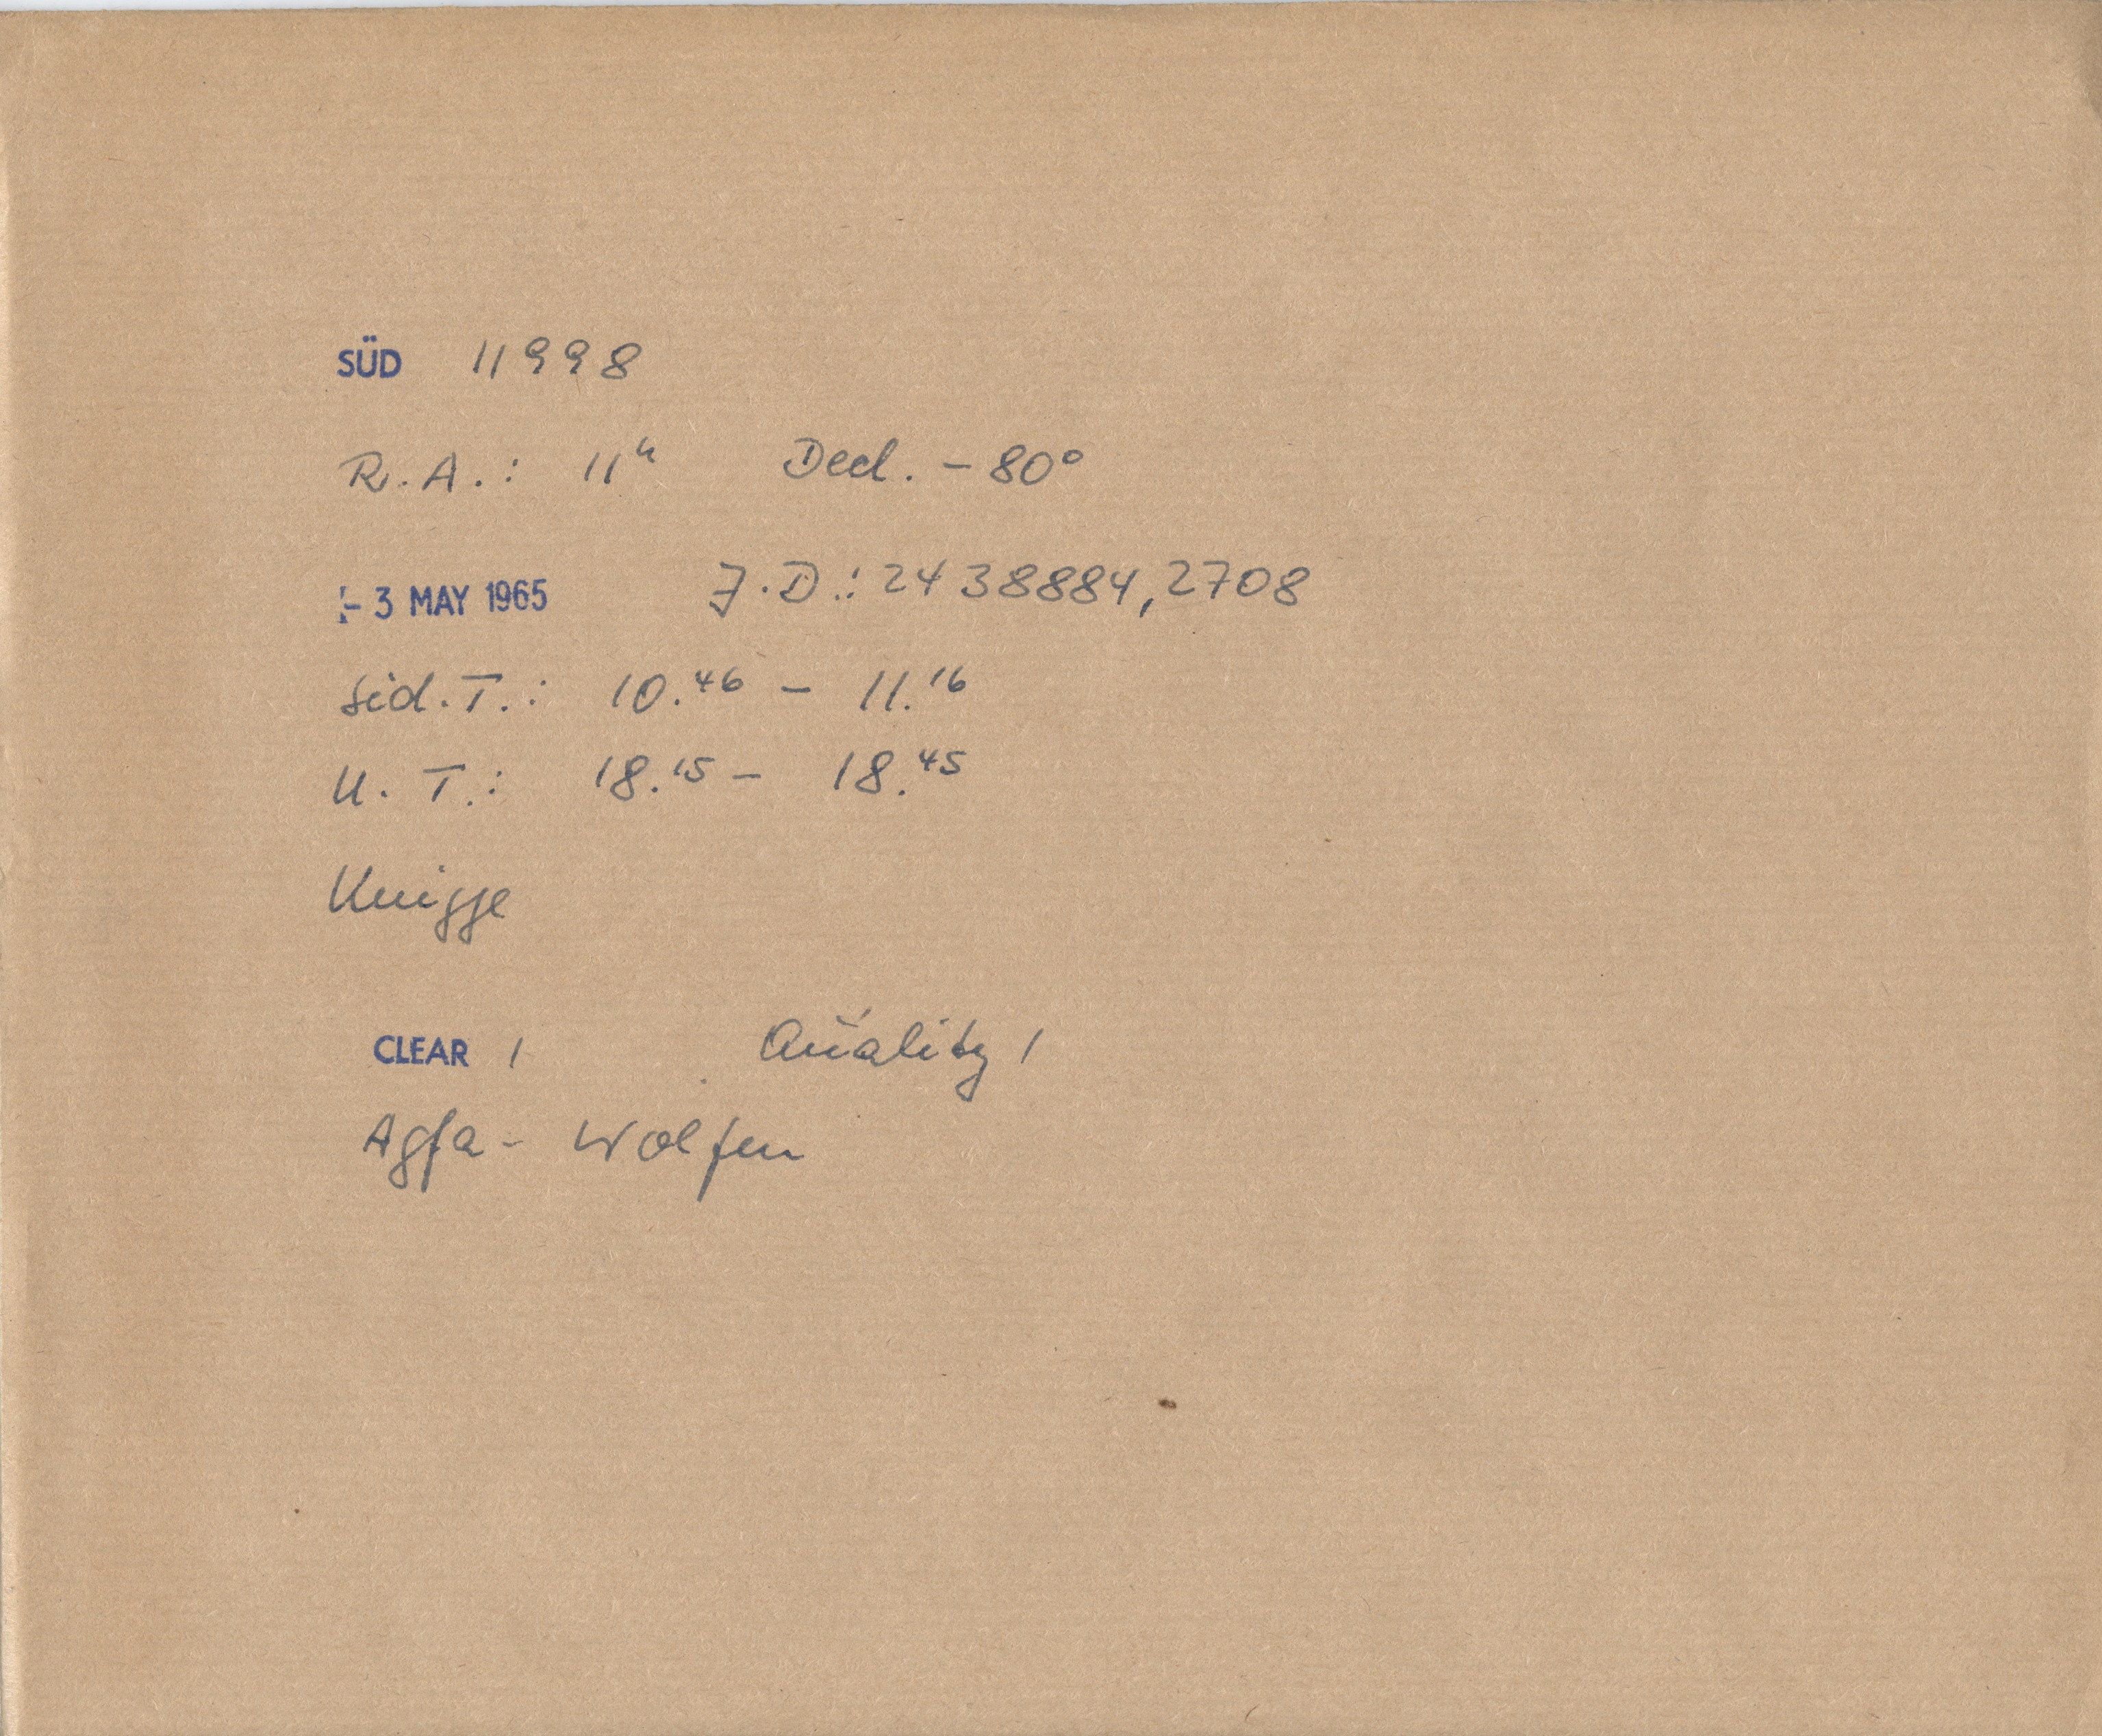 SÜD 11998
R.A.: 11h Decl. - 80°
- 3 MAY 1965 J.D.: 2438884,2708
Sid.T.: 10.46 - 11.16
U. T.: 18.15 - 18.45
Knigge
CLEAR 1 Quality 1
Agfa - Wolfen